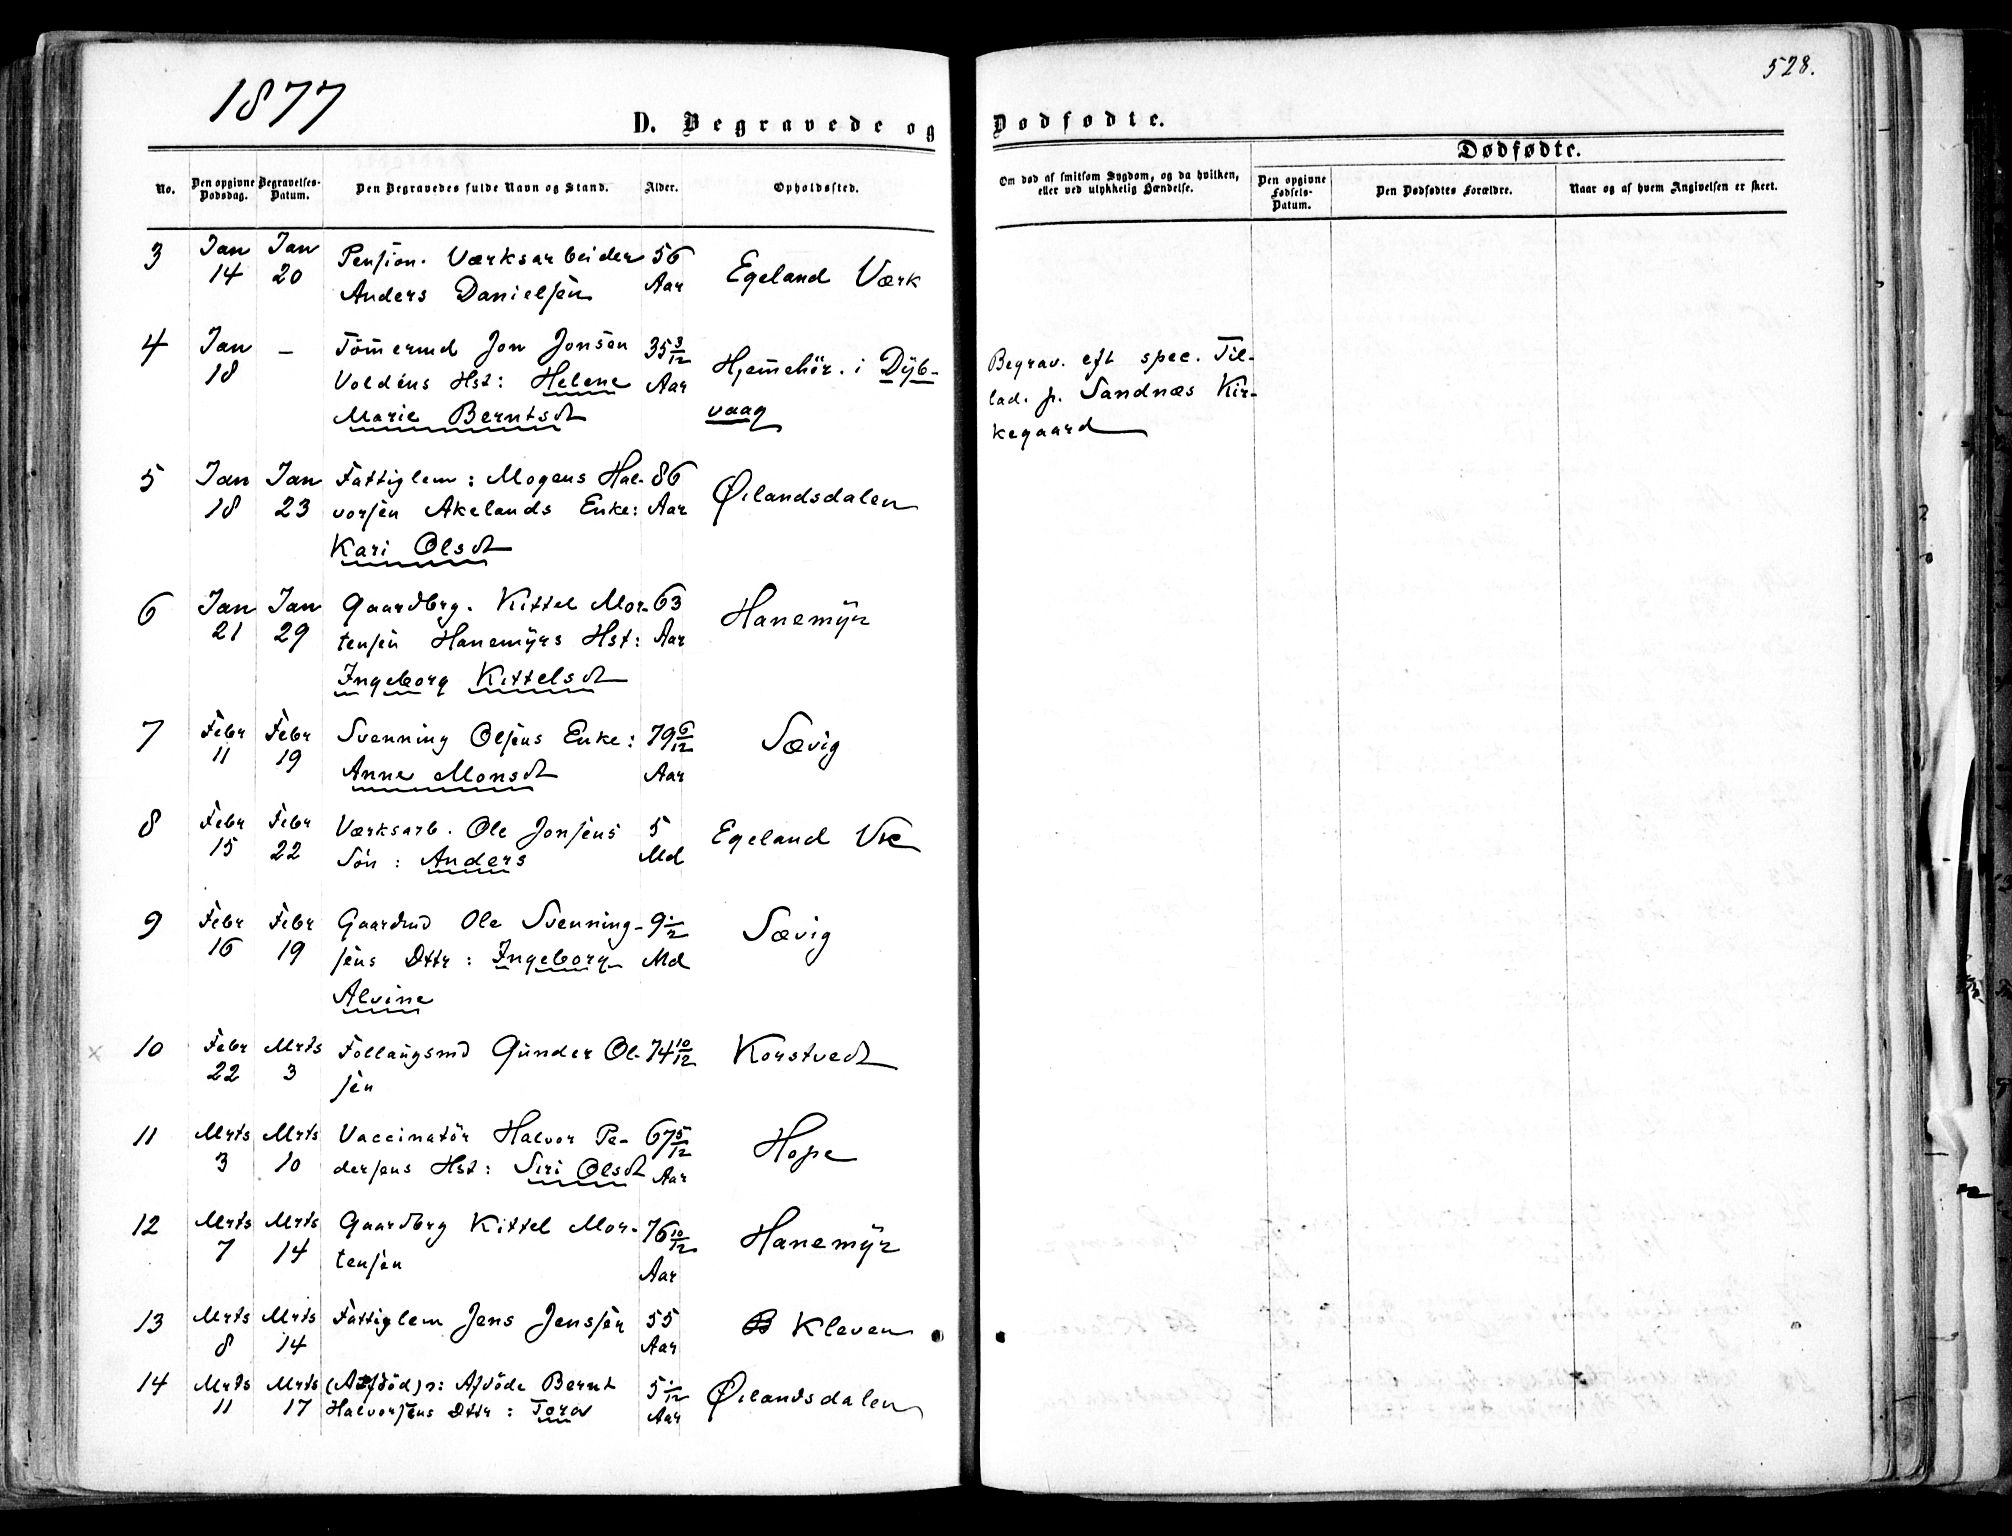 1877
528.
D. Begravede og Dødfødte.
Dødfødte.
No.
Den opgivne Dødsdag.
Begravelses-Datum.
Den Begravedes fulde Navn og Stand.
Alder.
Opholdssted.
Om død af smitsom Sygdom, og da hvilken, eller ved ulykkelig Hændelse.
Den opgivne Fødsels-Datum.
Den Dødfødtes Forældre.
Naar og af hvem Angivelsen er skeet.
3 Jan Jan Pension. Værksarbeider 56
14 20 Anders Danielsen Aar Egeland Værk
4 Jan – Tömermd Jon Jonsen 35 3/12
18 Voldens Hst: Helene Aar Hjemehör. i Dÿb-
Marie Berntsdt vaag
Begrav. eft spec. Til-
lad. p. Sandnæs Kir-
kegaard
5 Jan Jan Fattiglem: Mogens Hal- 86
18 23 vorsen Akelands Enke: Aar Øilandsdalen
Kari Olsdt
6 Jan Jan Gaardbrg. Kittel Mor- 63
21 29 tensen Hanemÿrs Hst: Aar Hanemÿr
Ingeborg Kittelsdt
7 Febr Febr Svenning Olsens Enke: 79 6/12 Sævig
11 19 Anne Monsdt Aar
8 Febr Febr Værksarb. Ole Jonsens 5 Egeland Vk
15 22 Sön: Anders Md
9 Febr Febr Gaardmd Ole Svenning- 9 1/2 Sævig
16 19 sens Dttr: Ingeborg Md
Alvine
10 Febr Mrts Follaugsmd Gunder Ol- 74 10/12 Korstvedt
22 3 sen
11 Mrts Mrts Vaccinatör Halvor Pe- 67 5/12 Hope
3 10 dersens Hst: Siri Olsdt Aar
12 Mrts Mrts Gaardbrg Kittel Mor- 76 10/12 Hanemÿr
7 14 tensen Aar
13 Mrts Mrts Fattiglem Jens Jenssen 55 Kleven
8 14 Aar
14 Mrts Mrts Afdöde Bernt 5 1/12 Øilandsdalen
11 17 Halvorsens Dttr: Tora Aar